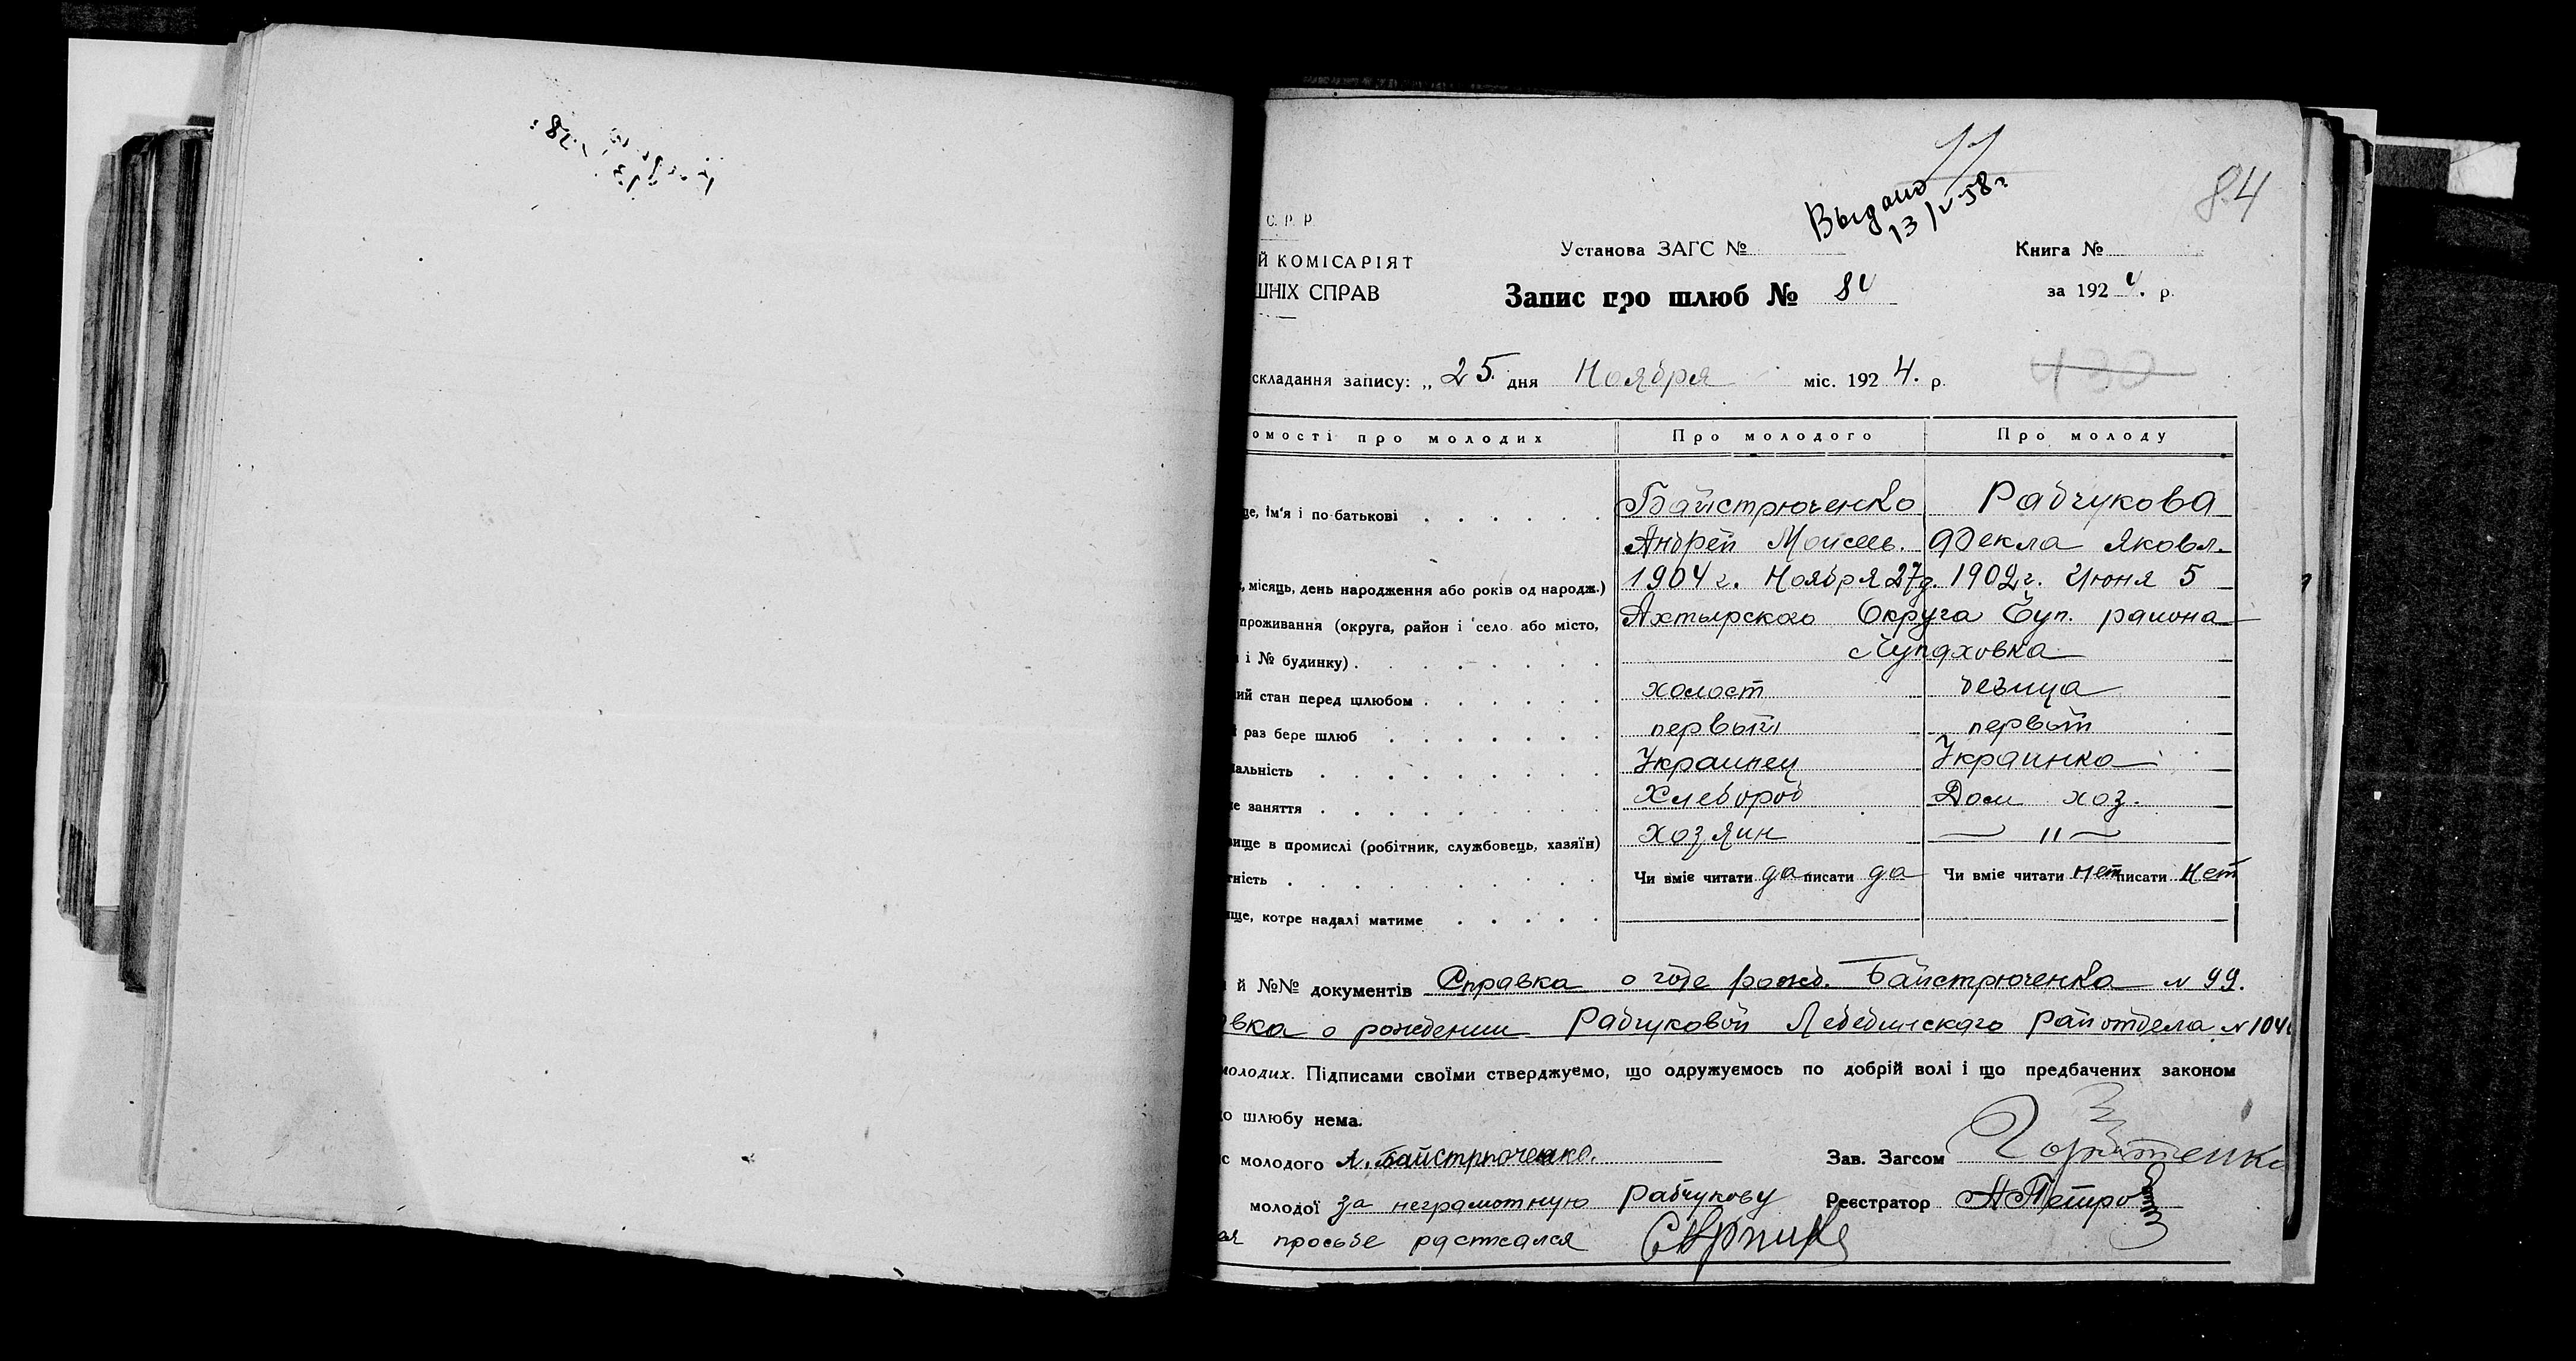 84
Выдано
13/V-58 г
С. Р. Р.
Й КОМІСАРІЯТ
ШНІХ СПРАВ
Установа ЗАГС №
Книга №
Запис про шлюб № 84
за 1924. р.
складання запису: „ 25 дня Ноября міс. 1924. р.
430
омості про молодих Про молодого Про молоду
ще, ім'я і по-батькові Байстрюченко Рабчукова
Андрей Моисеев. Фекла Яковл.
, місяць, день народження або років од народж.) 1904 г. Ноября 27д. 1902 г. Июня 5
проживання (округа, район і село або місто, Ахтырского Округа Чуп. района
і № будинку) Чупаховка
ий стан перед шлюбом холост девица
й раз бере шлюб первый первый
альність Украинец Украинка
не заняття Хлебороб Дом хоз.
вище в промислі (робітник, службовець, хазяїн) хозяин — " —
тність Чи вміє читати да писати да Чи вміє читати нет писати нет
ище, котре надалі матиме
й №№ документів Справка о годе рожд. Байстрюченка № 99.
авка о рождении Рабчуковой Лебединскаго Райотдела № 104
молодих. Підписами своїми стверджуємо, що одружуємось по добрій волі і що предбачених законом
о шлюбу нема.
с молодого А. Байстрюченко. Зав. Загсом
молодої за неграмотную Рабчукову Реєстратор АПетро
просьбе расписался